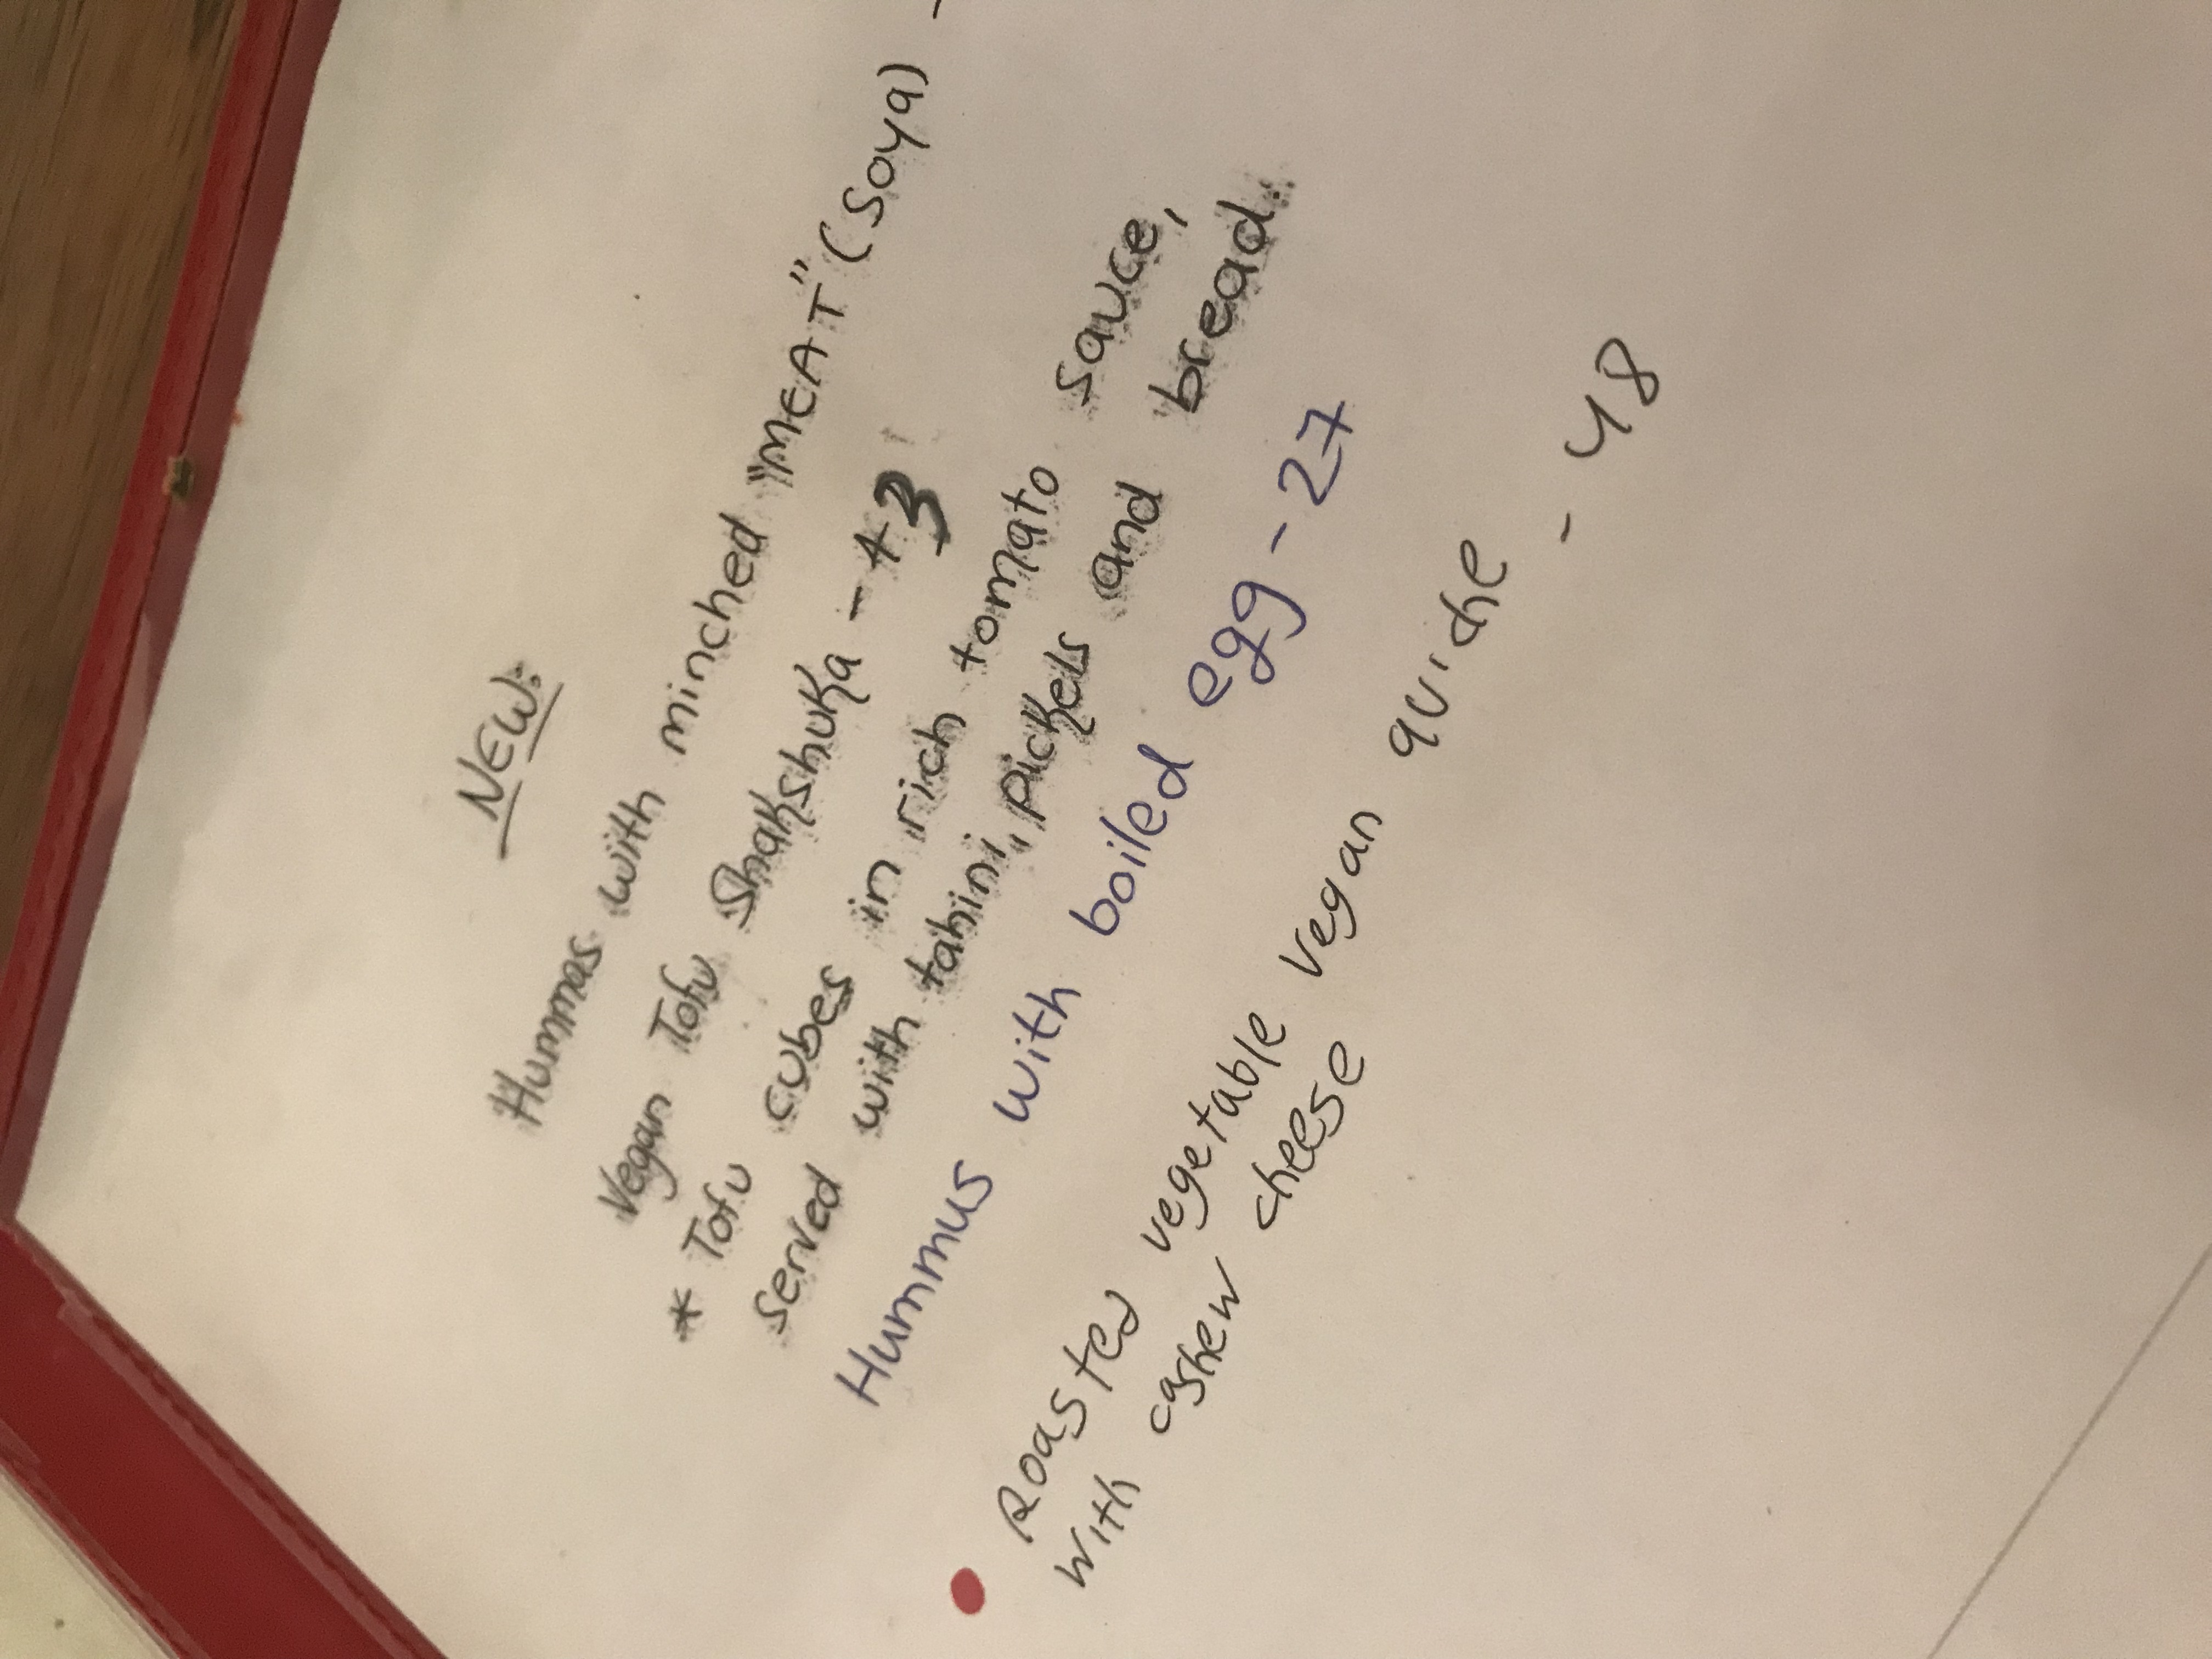 NEW:
Hummas with minched "MEAT" (Soya) -
Vegan Tofu Shakshuka - 43
* Tofu cubes in rich tomato sauce,
served with tahini, pickels and bread.
Hummus with boiled egg - 27
Roasted vegetable vegan quiche - 48
with cashew cheese